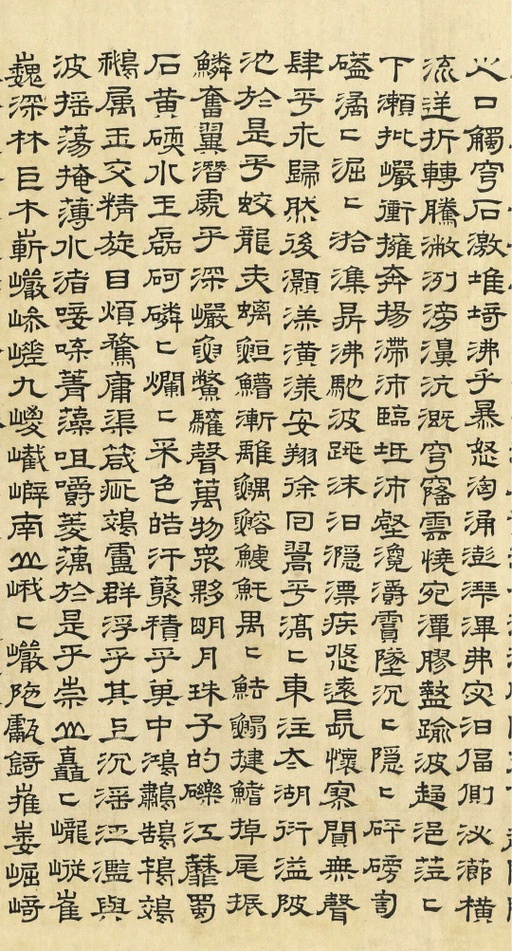 之口觸穹石激堆埼沸乎暴怒洶涌澎湃滭弗宓汩偪側泌瀄橫
流逆折轉騰潎洌滂濞沆溉穹窿雲橈宛潬膠盭踰波趨浥莅〻
下瀨批巖衝擁奔揚滯沛臨坻沛壑瀺灂霣墜沉〻隱〻砰磅訇
磕潏〻淈〻湁潗鼎沸馳波跳沫汩漂疾悠遠長懷無聲
肆乎永歸然後灝溔潢漾安翔徐回翯乎滈〻東注太湖衍溢陂
池於是乎蛟龍赤螭䱭漸離鰅鰫鰬魠禺〻魼鰨揵鰭掉尾振
鱗奮翼潛處乎深巖魚鱉讙聲萬物衆夥明月珠子的礫江靡蜀
石黃碝水玉磊砢磷〻爛〻采色皓汗藂積乎其中鴻鷫鵠鴇
鵝屬玉交精旋目煩鶩庸渠箴疵鵁盧群浮乎其上沉淫泛濫與
波搖蕩掩薄水渚唼喋菁藻咀嚼菱藕於是乎崇山矗〻巃嵷崔
巍深林巨木嶄巖嵾嵳九嵕嶻嶭南山峨〻巖陁甗錡嶊崣崛崎